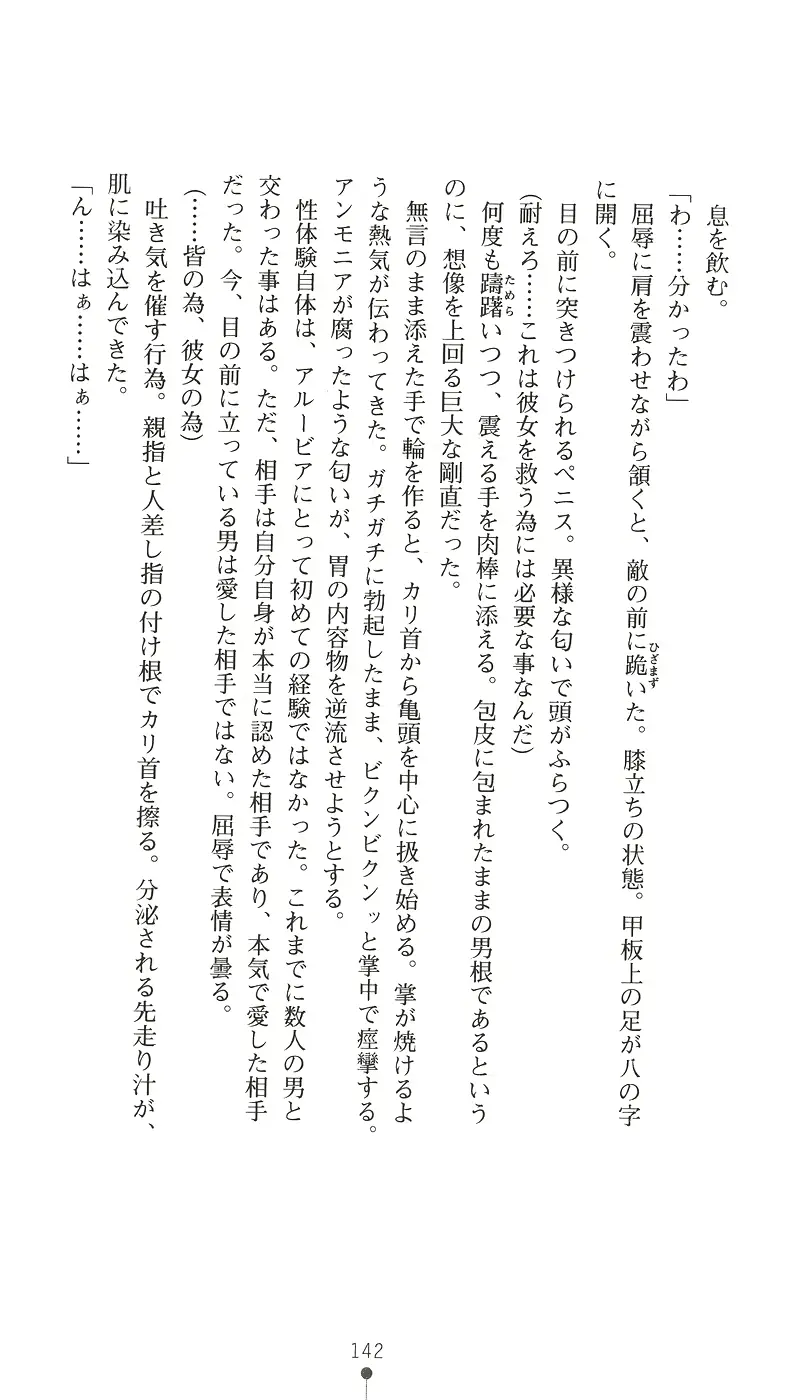 息を飲む。
「わ……分かったわ」
屈辱に肩を震わせながら頷くと、敵の前に跪いた。膝立ちの状態。甲板上の足が八の字
ひざまず
に開く。
目の前に突きつけられるペニス。異様な匂いで頭がふらつく。
(耐えろ……これは彼女を救う為には必要な事なんだ)
何度も躊躇いつつ、震える手を肉棒に添える。包皮に包まれたままの男根であるという
ためら
のに、想像を上回る巨大な剛直だった。
無言のまま添えた手で輪を作ると、カリ首から亀頭を中心に扱き始める。掌が焼けるよ
うな熱気が伝わってきた。ガチガチに勃起したまま、ビクンビクンッと掌中で痙攣する。
アンモニアが腐ったような匂いが、胃の内容物を逆流させようとする。
性体験自体は、アルービアにとって初めての経験ではなかった。これまでに数人の男と
交わった事はある。ただ、相手は自分自身が本当に認めた相手であり、本気で愛した相手
だった。今、目の前に立っている男は愛した相手ではない。屈辱で表情が曇る。
(……皆の為、彼女の為)
吐き気を催す行為。親指と人差し指の付け根でカリ首を擦る。分泌される先走り汁が、
肌に染み込んできた。
「ん……はぁ……はぁ……」
142